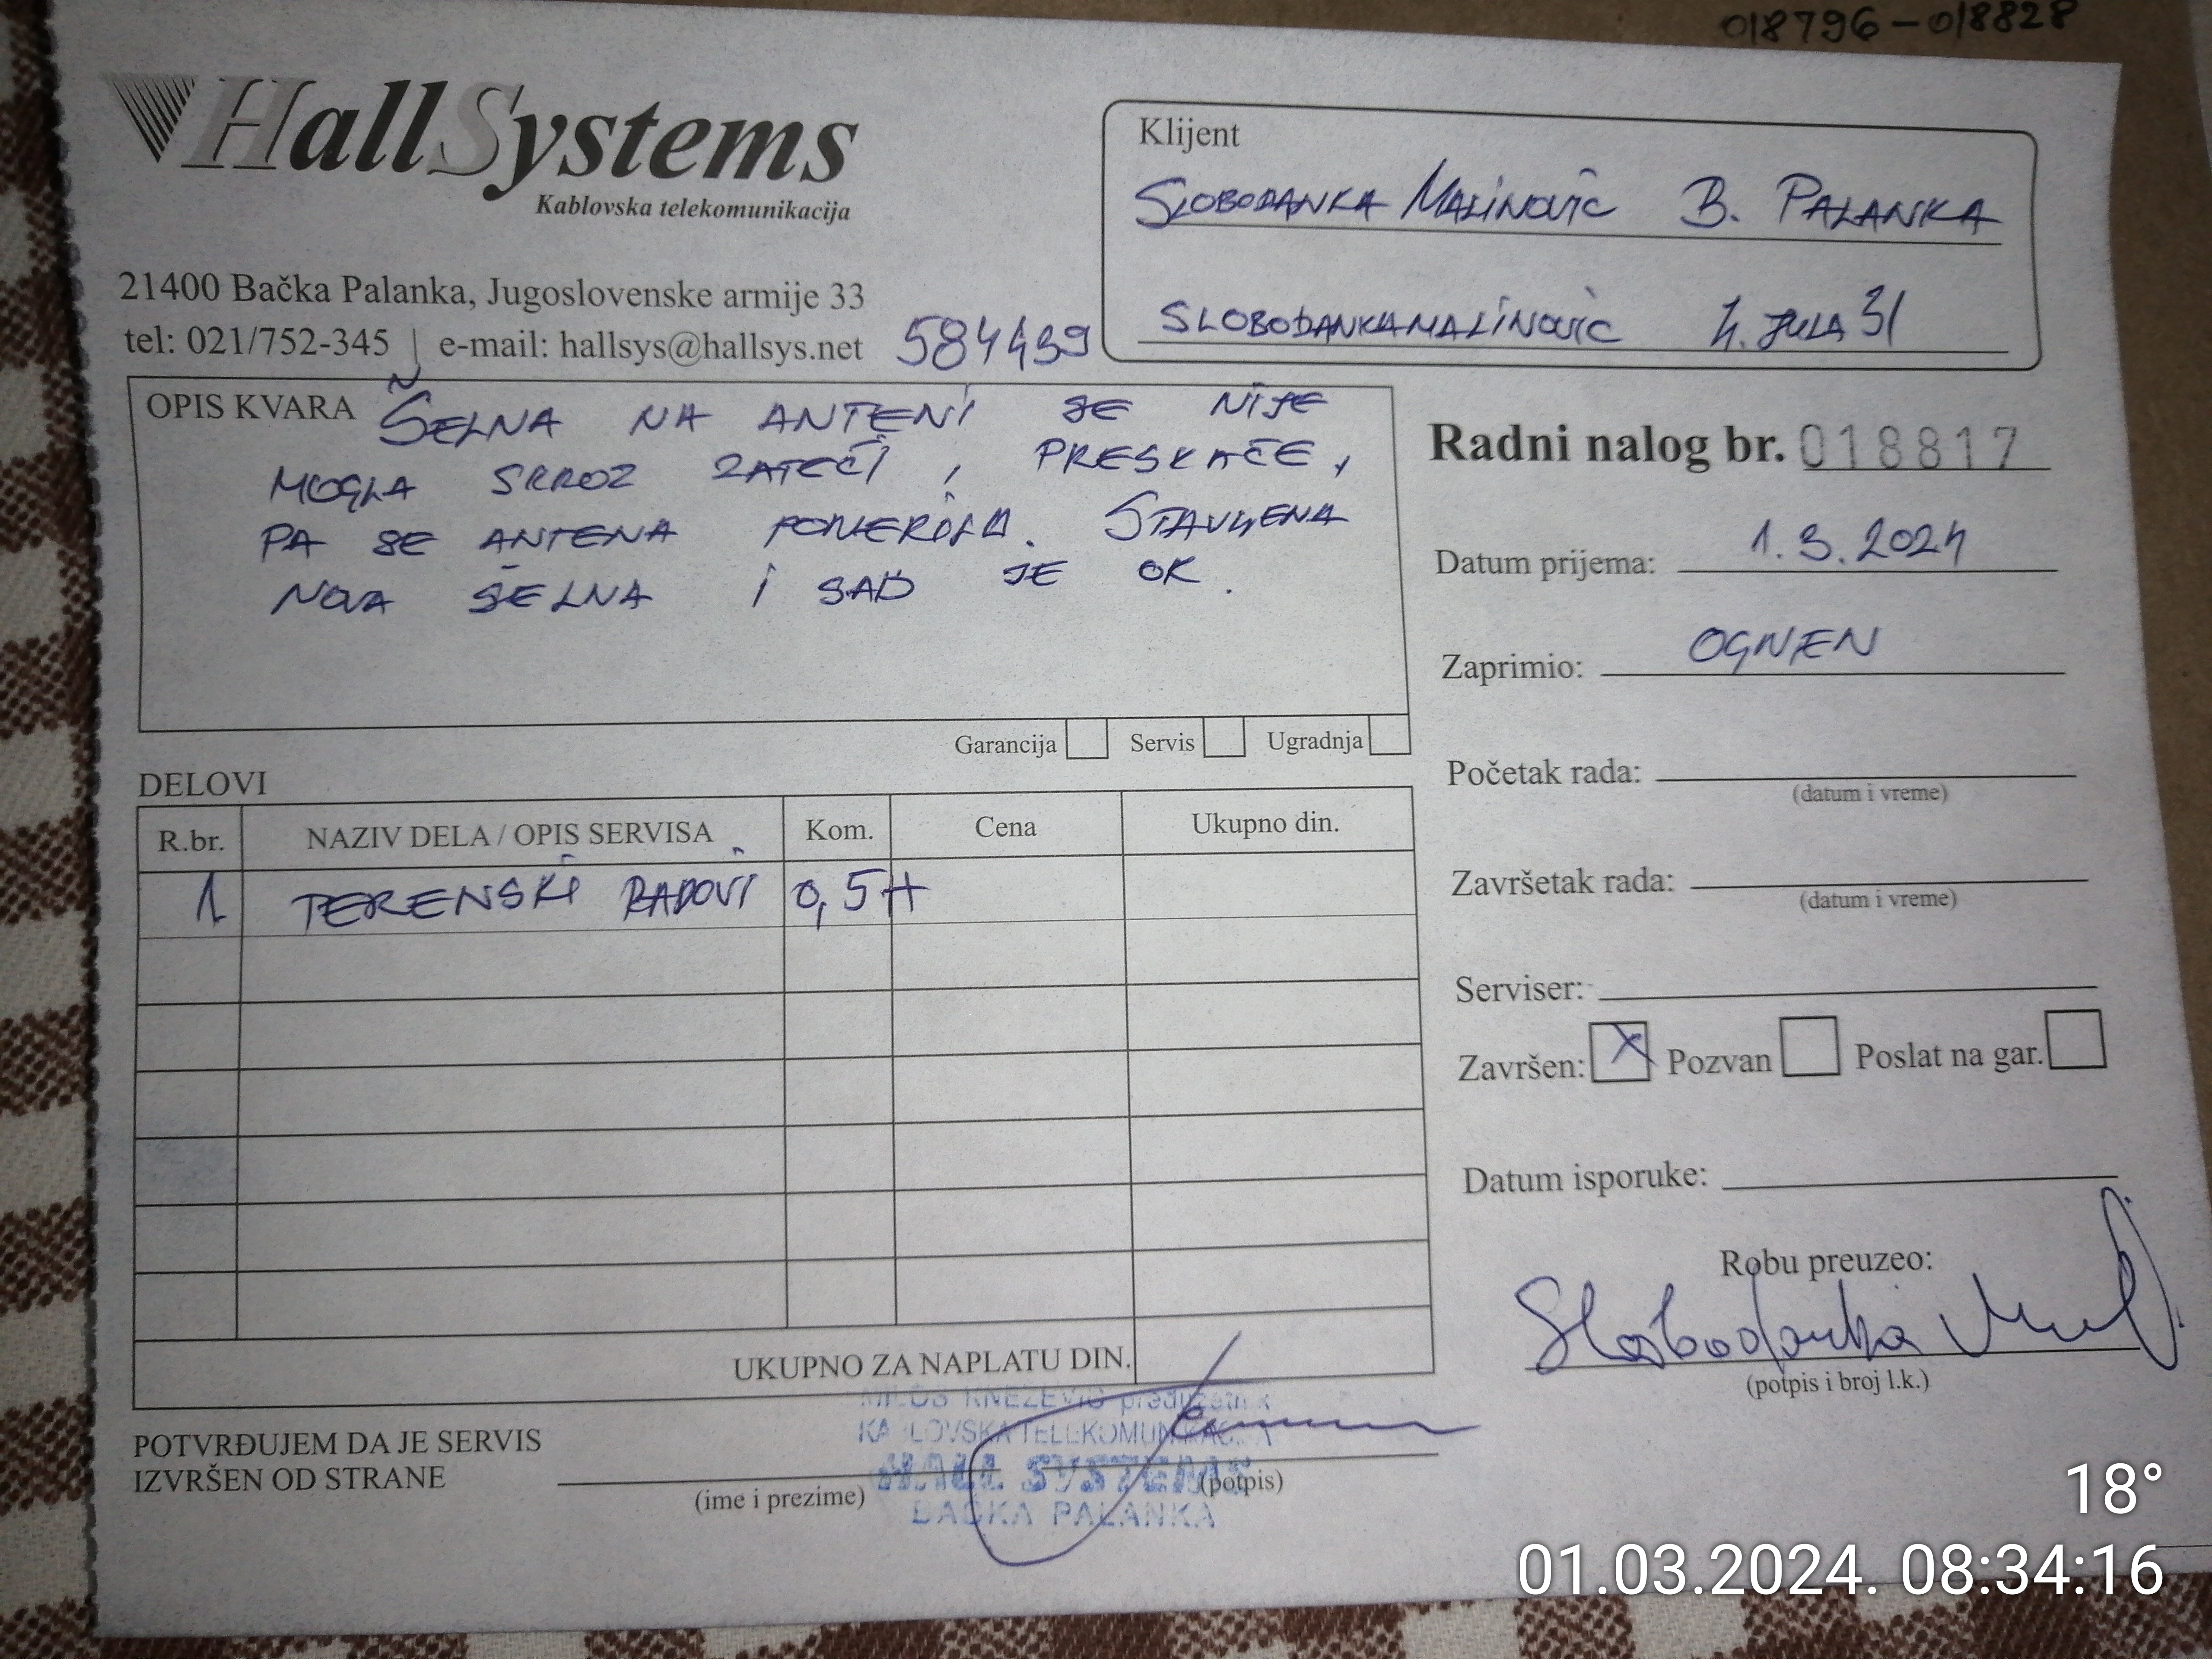 018796-018828
HallSystems
Kablovska telekomunikacija
21400 Bačka Palanka, Jugoslovenske armije 33
tel: 021/752-345 | e-mail: hallsys@hallsys.net
584439
Klijent
SLOBODANKA MALINOVIĆ B. PALANKA
SLOBODANKAMALINOVIC 4. JULA 31
OPIS KVARA ŠELNA NA ANTENI SE NIJE
MOGLA SKROZ ZATEĆI, PRESKAČE,
PA SE ANTENA POMERILA. STAVLJENA
NOVA ŠELNA I SAD JE OK.
Garancija Servis Ugradnja
Radni nalog br. 018817
Datum prijema: 1.3.2024
Zaprimio: OGNJEN
Početak rada:
(datum i vreme)
Završetak rada:
(datum i vreme)
Serviser:
Završen: X Pozvan Poslat na gar.
Datum isporuke:
Robu preuzeo:
Slobodanka
(potpis i broj l.k.)
DELOVI
R.br. NAZIV DELA / OPIS SERVISA Kom. Cena Ukupno din.
1 TERENSKI RADOVI 0,5H
UKUPNO ZA NAPLATU DIN.
MILOŠ KNEŽEVIĆ preduzetnik
KABLOVSKA TELEKOMUNIKACIJA
HALL SYSTEMS
BAČKA PALANKA
POTVRĐUJEM DA JE SERVIS
IZVRŠEN OD STRANE
(ime i prezime) (potpis)
18°
01.03.2024. 08:34:16